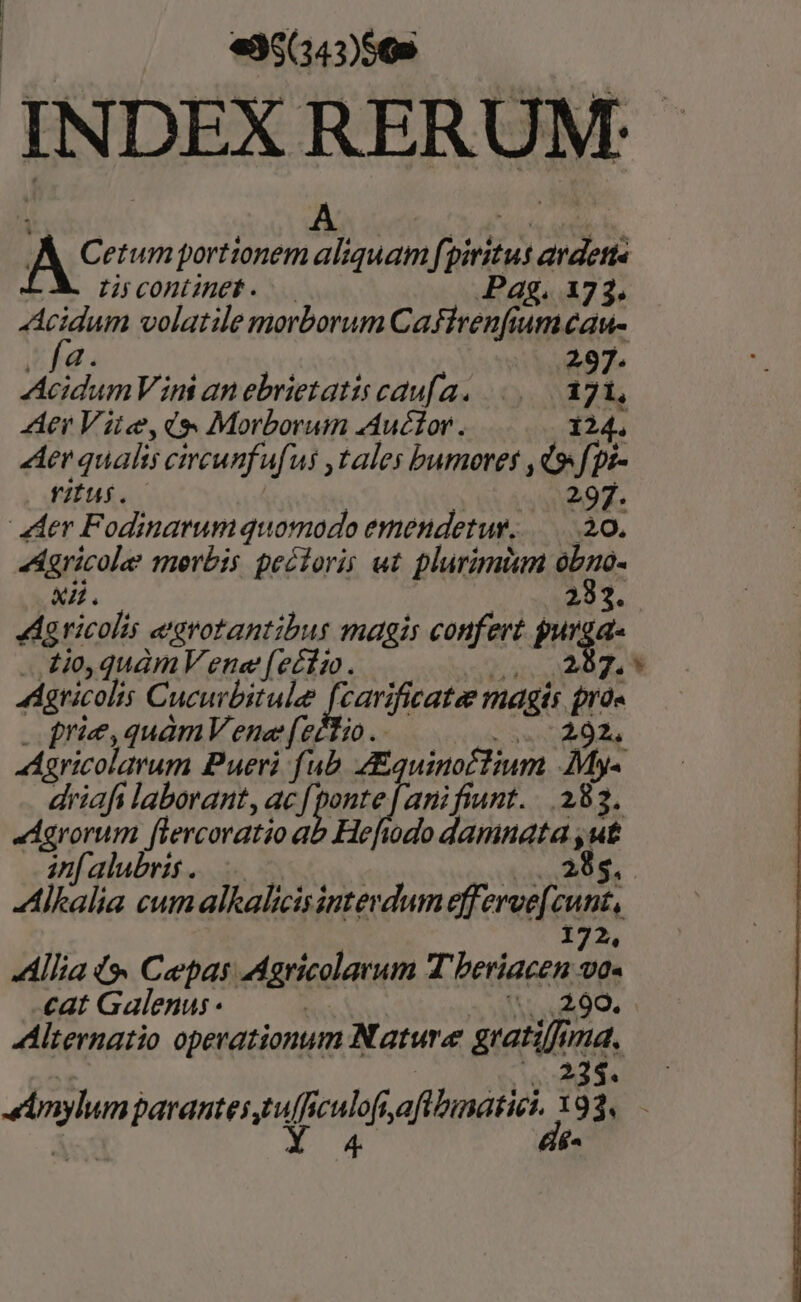 (343)
INDEX RERUM.
A
ACetum portionem aliquam ſpiritus arden-
tis continet. Pag. 173.
Acidum volatile morborum Caſtrenſium cau-
ſa. 297.
Acidum Vini an ebrietatis cauſa. 171.
Aer Vitæ, & Morborum Auctor. 124.
Aer qualis circunfuſus, tales humores, & ſpi-
ritus. 297.
Aer Fodinarum quomodo emendetur. 20.
Agricolæ morbis pectoris ut plurimùm obno-
xii. 283.
Agricolis ægrotantibus magis confert purga-
tio, quàm Venæ ſectio. 287.
Agricolis Cucurbitulæ ſcarificatæ magis pro-
priæ, quàm Venæ ſectio. 292.
Agricolarum Pueri ſub Æquinoctium My-
driaſi laborant, ac ſponte ſani fiunt. 283.
Agrorum ſtercoratio ab Heſiodo damnata, ut
inſalubris. 285.
Alkalia cum alkalicis interdum efferveſcunt.
172.
Allia & Cæpas Agricolarum Theriacen vo-
cat Galenus. 290.
Alternatio operationum Naturæ gratiſſima.
235.
Amylum parantes, tuſſiculoſi, aſthmatici. 193.
Y 4 de-